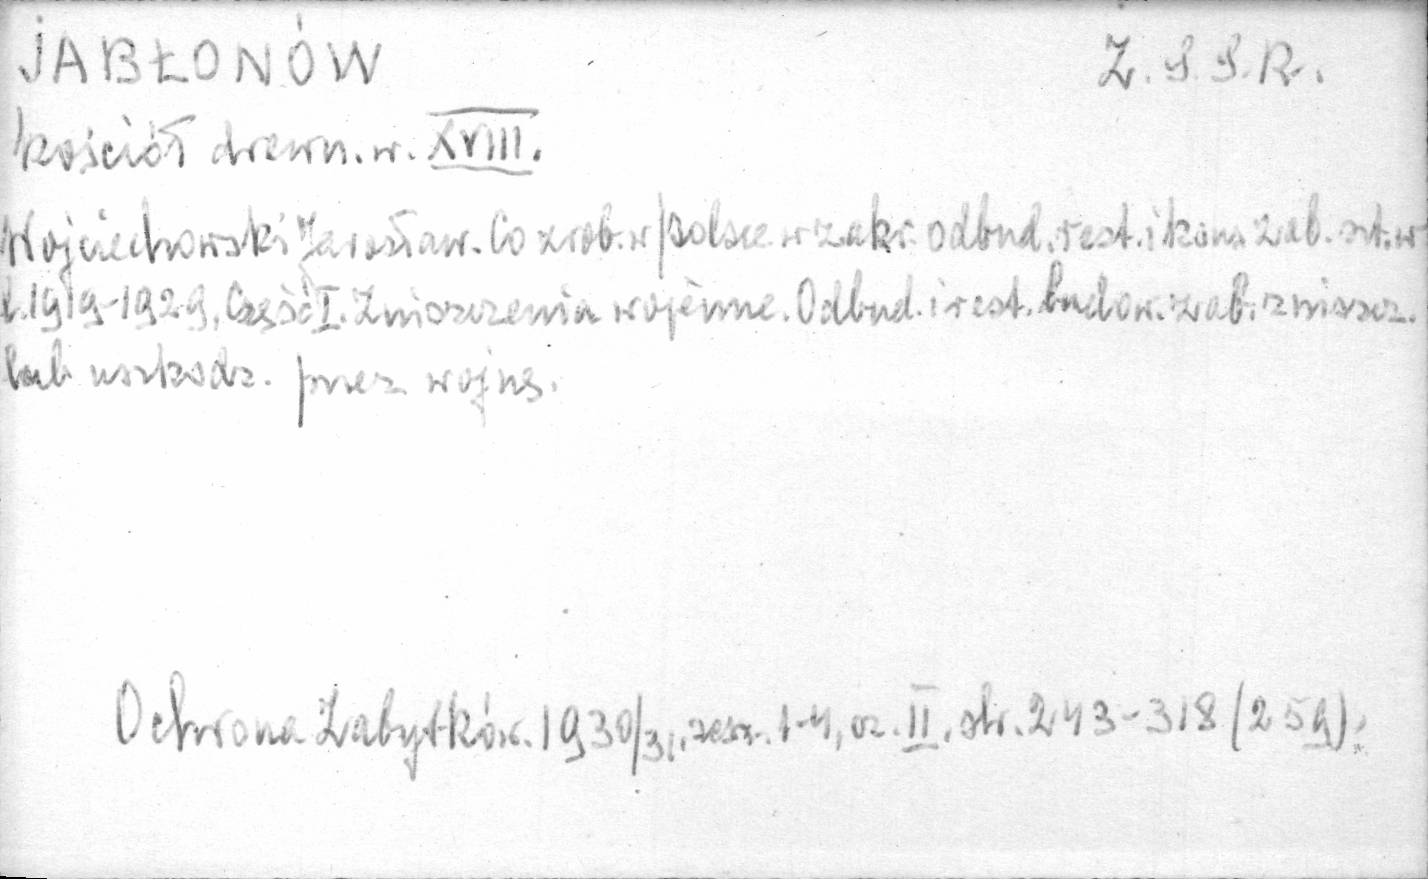 JABŁONÓW Z.S.S.R.
kościół drewn. w. XVIII.
Wojciechowski Jarosław. Co zrob. w Polsce w zakr. odbud. rest. i kons. zab. szt. w
l. 1919-1929. Część I. Zniszczenia wojenne. Odbud. i rest. budow. zab. zniszcz.
lub uszkodz. przez wojnę.
Ochrona Zabytków. 1930/31, zesz. 1-4, cz. II, str. 243-318 (259).